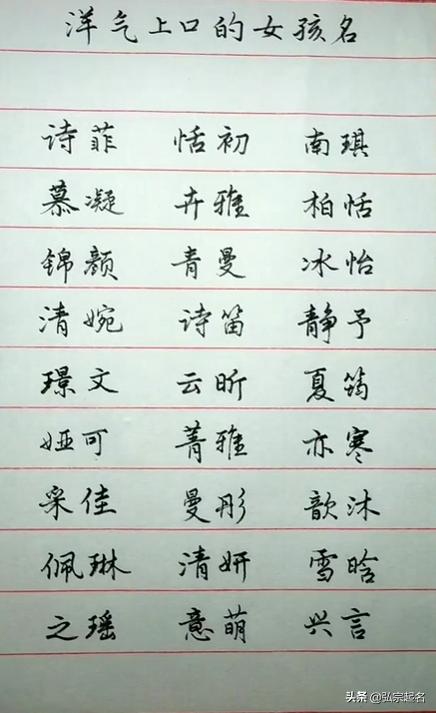 洋气上口的女孩名
诗菲 恬初 南琪
慕凝 卉雅 柏恬
锦颜 青曼 冰怡
清婉 诗笛 静予
璟文 云昕 夏筠
娅可 菁雅 亦寒
采佳 曼彤 歆沐
佩琳 清妍 雪晗
之瑶 意萌 兴言
头条 @弘宗起名